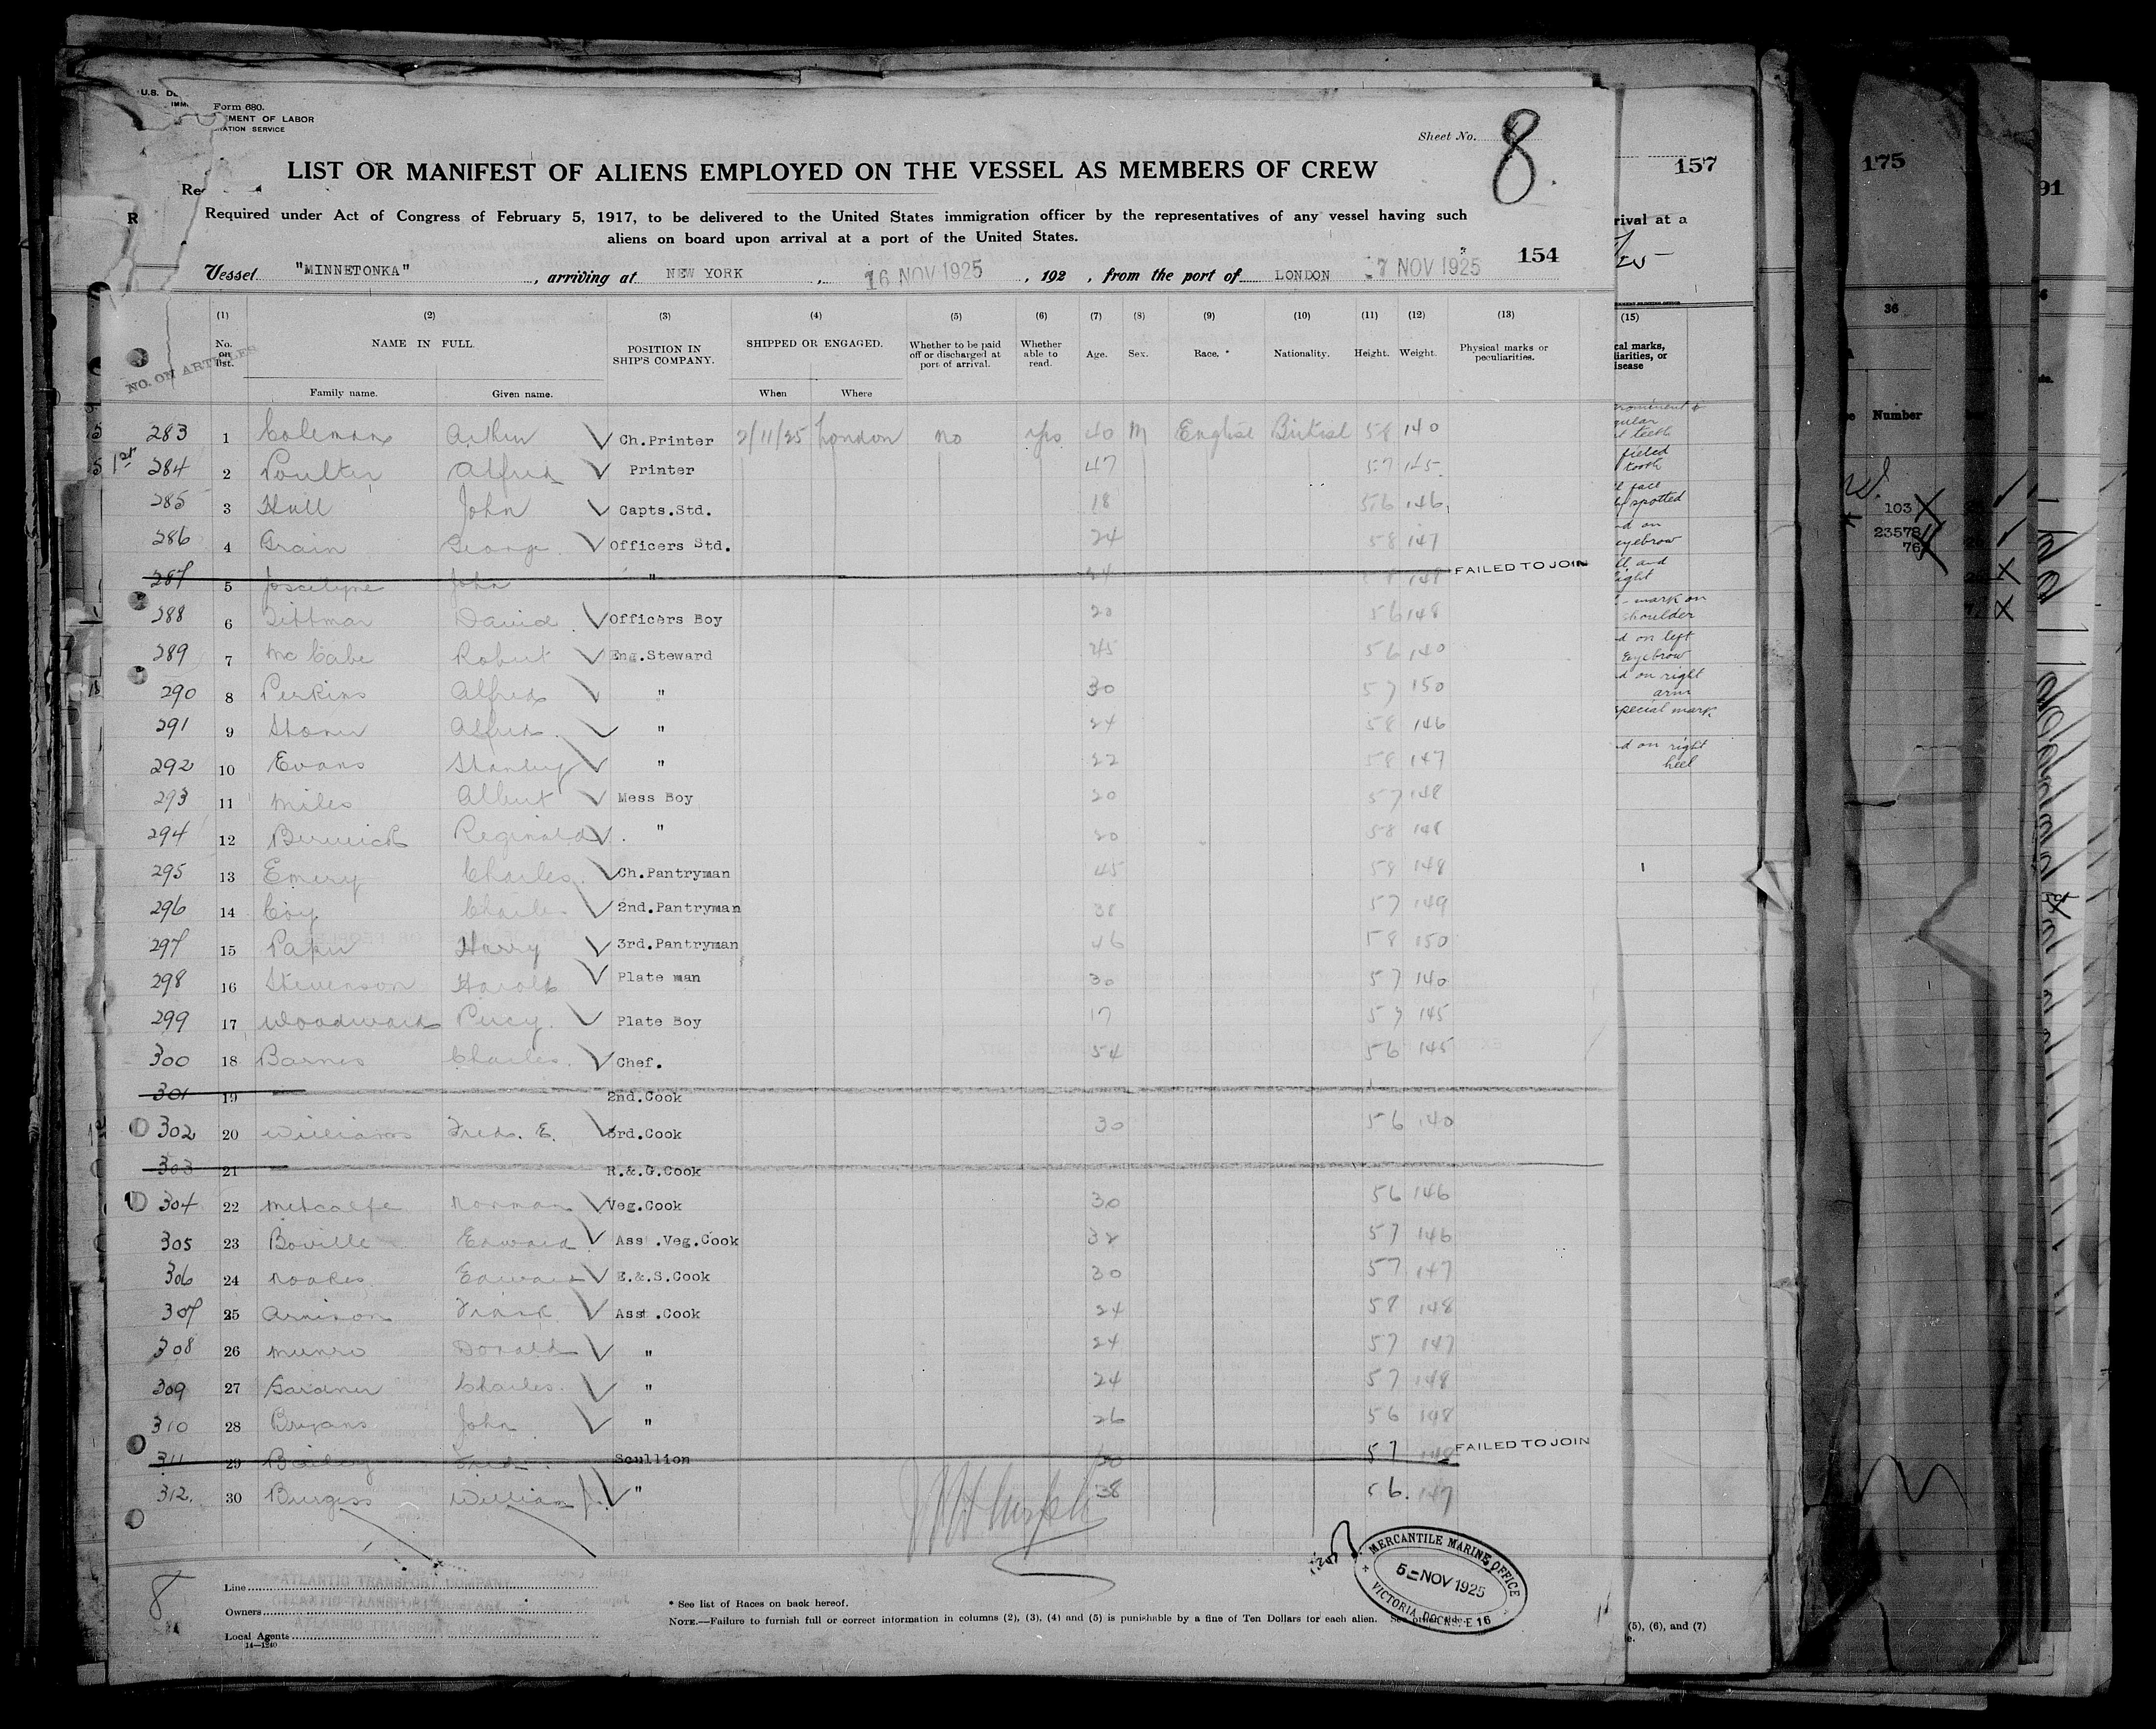 Form 680.
U.S. DE
EMENT OF LABOR
IMM
RATION SERVICE
Sheet No. 8.
LIST OR MANIFEST OF ALIENS EMPLOYED ON THE VESSEL AS MEMBERS OF CREW
Required under Act of Congress of February 5, 1917, to be delivered to the United States immigration officer by the representatives of any vessel having such
aliens on board upon arrival at a port of the United States.
154
Vessel "MINNETONKA", arriving at NEW YORK, 16 NOV 1925, 192 , from the port of LONDON 7 NOV 1925
NO. ON ARTICLES
(1) (2) (3) (4) (5) (6) (7) (8) (9) (10) (11) (12) (13)
No. on list. NAME IN FULL. POSITION IN SHIP'S COMPANY. SHIPPED OR ENGAGED. Whether to be paid off or discharged at port of arrival. Whether able to read. Age. Sex. Race. * Nationality. Height. Weight. Physical marks or peculiarities.
Family name. Given name. When Where
283 1 Coleman Arthur Ch.Printer 2/11/25 London no yes 40 M English British 58 140
1st 284 2 Poulter Alfred Printer 47 57 145
285 3 Hull John Capts.Std. 18 56 146
286 4 Grain George Officers Std. 24 58 147
287 5 Joscelyne John " 24 8 148 FAILED TO JOIN
288 6 David Officers Boy 20 56 148
289 7 McCabe Robert Eng.Steward 45 56 140
290 8 Perkins Alfred " 30 57 150
291 9 Alfred " 24 58 146
292 10 Evans Stanley " 22 58 147
293 11 Miles Albert Mess Boy 20 57 148
294 12 Berwick Reginald " 20 58 148
295 13 Emery Charles Ch.Pantryman 45 58 148
296 14 Coy Charles 2nd.Pantryman 38 57 149
297 15 Paper Harry 3rd.Pantryman 46 58 150
298 16 Stevenson Harold Plate man 30 57 140
299 17 Woodward Percy Plate Boy 17 57 145
300 18 Barnes Charles Chef. 54 56 145
301 19 2nd.Cook
302 20 Williams Fred. E. 3rd.Cook 30 56 140
303 21 R.&.G.Cook
304 22 Metcalfe Norman Veg.Cook 30 56 146
305 23 Boville Edward Asst.Veg.Cook 32 57 146
306 24 Noakes Edward E.&.S.Cook 30 57 147
307 25 Arnison Frank Asst.Cook 24 58 148
308 26 Munro Donald " 24 57 147
309 27 Gardner Charles " 24 57 148
310 28 Bryans John " 26 56 148
311 29 Bailey Fred Scullion 30 57 148 FAILED TO JOIN
312. 30 Burgess William J. " 38 56. 147
MERCANTILE MARINE OFFICE
5 - NOV 1925
VICTORIA DOCKS. E 16
8
Line ATLANTIC TRANSPORT COMPANY
Owners
Local Agents
14—1240
* See list of Races on back hereof.
NOTE.—Failure to furnish full or correct information in columns (2), (3), (4) and (5) is punishable by a fine of Ten Dollars for each alien. See other side.
157
rival at a
(15)
cal marks,
liarities, or
isease
prominent
gular
teeth
tooth
face
spotted
d on
eyebrow
and
ight
mark on
shoulder
d on left
Eyebrow
d on right
arm
special mark
d on right
heel
(5), (6), and (7)
175
36
Number
103
23578
76
91